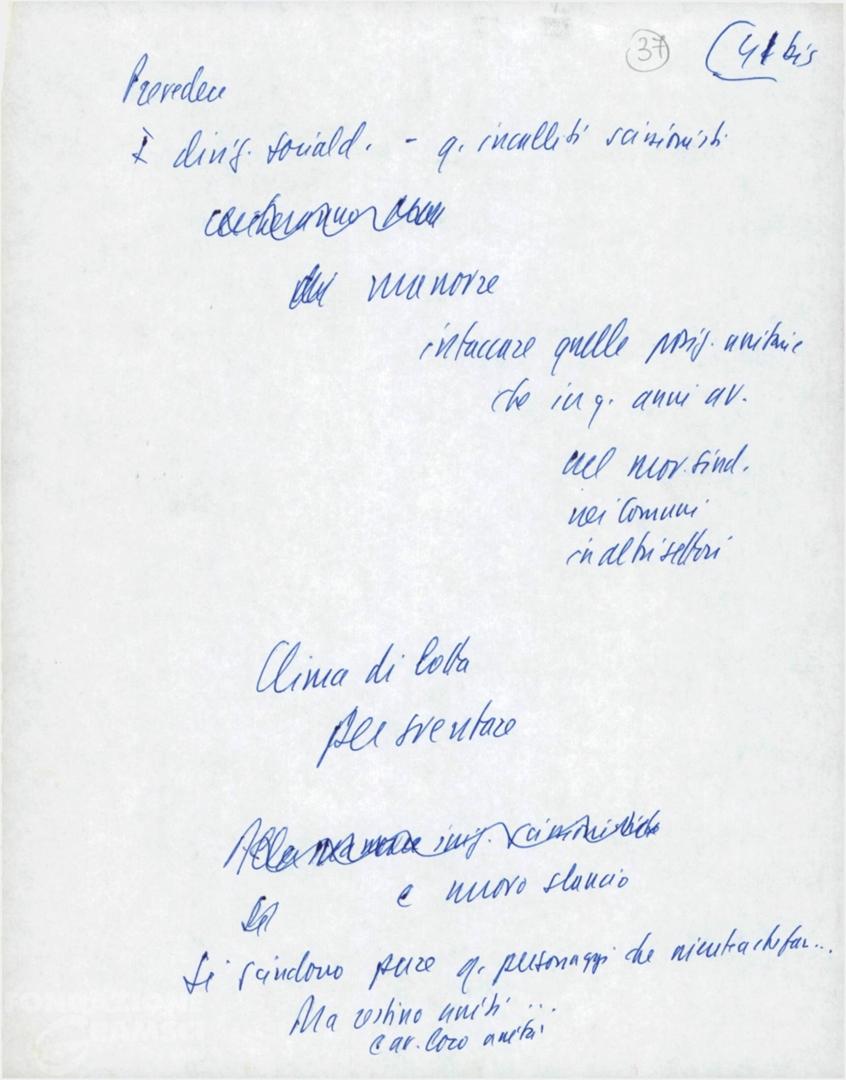 37
41 bis
Prevedere
I dirig. sociald. - q. incalliti scissionisti
manovre
intaccare quelle posiz. unitarie
che in q. anni av.
nel mov. sind.
nei Comuni
in altri settori
Clima di lotta
per sventare
Alla manovra scissionistica
e nuovo slancio
Si scindono pure q. personaggi che nient'altro
Ma restino uniti ...
e av. loro unità
FONDAZIONE